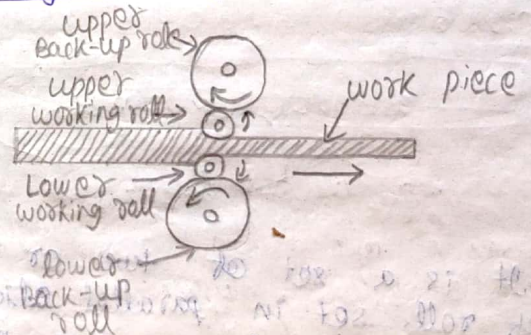 upper
Back-up role
upper
working roll
work piece
Lower
working roll
lower
Back-up
roll